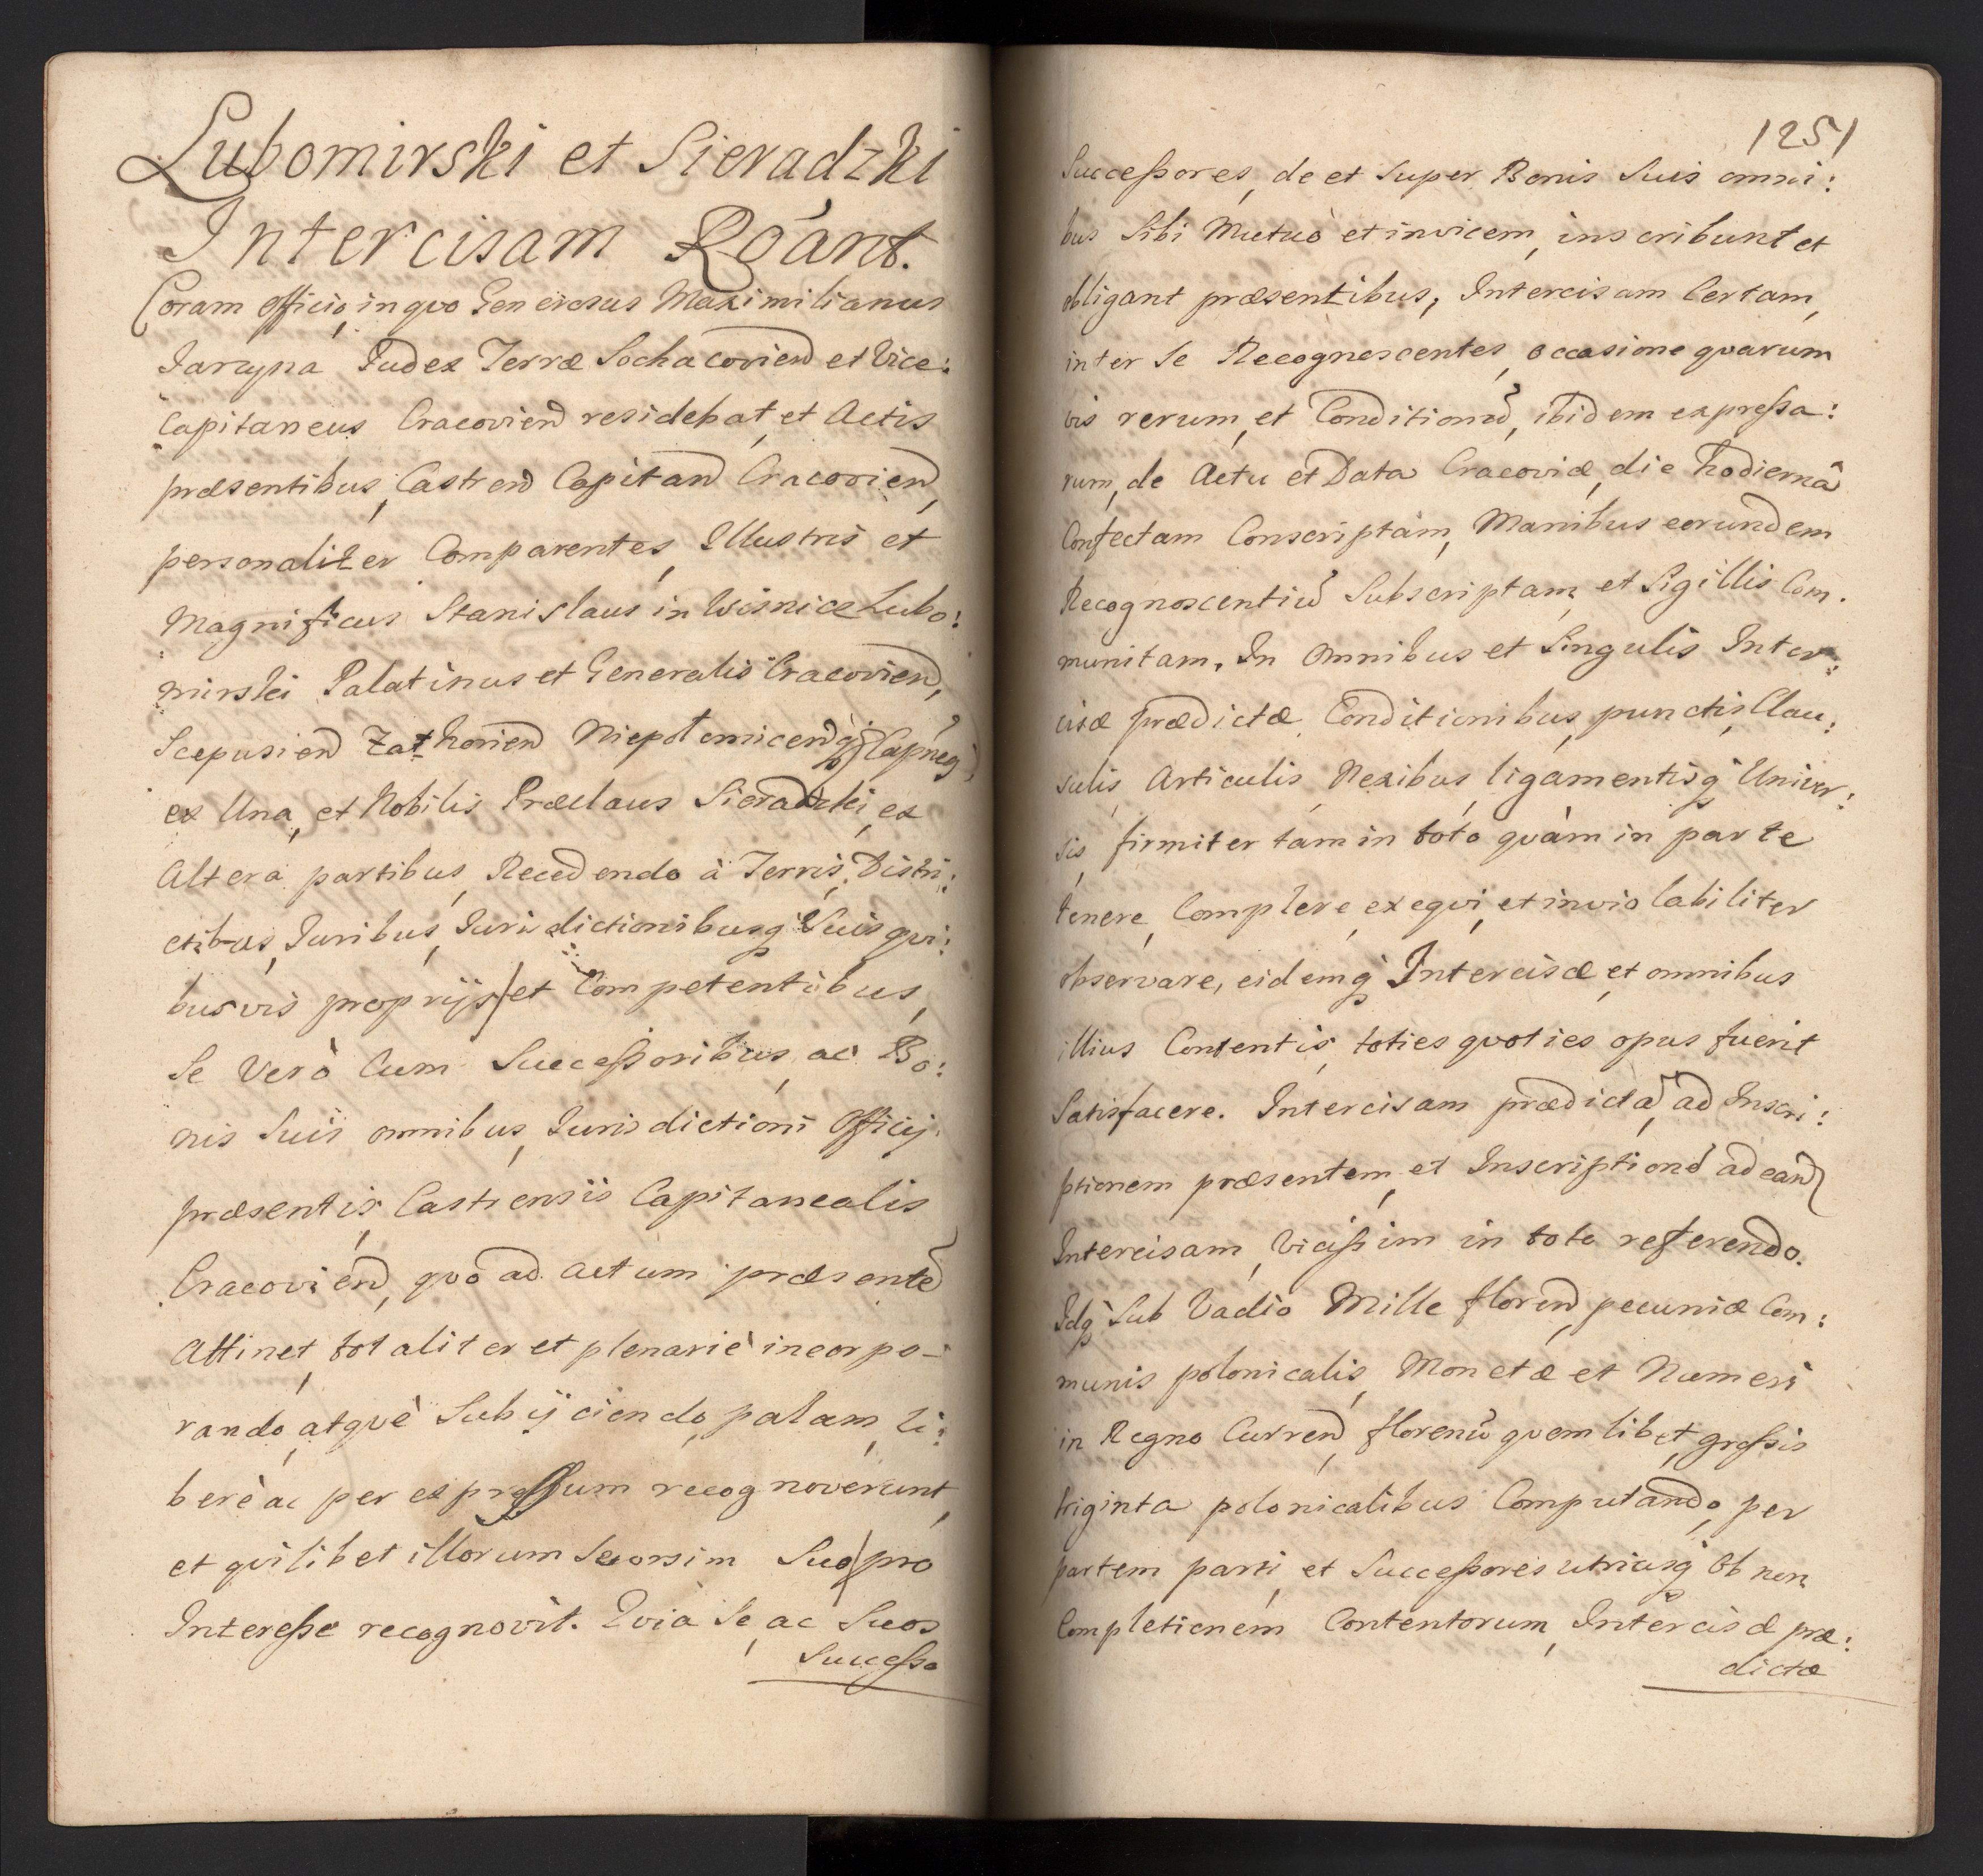 Lubomirski et Sieradzki
Intercisam Roánt.
Coram officio, in quo Generosus Maximilianus
Jarcyna Judex Terræ Sochacovien̄ et Vice:
Capitaneus Cracovien̄ residebat, et Actis
præsentibus, Castren̄ Capitan̄ Cracovien̄,
personaliter Comparentes, Illustris et
Magnificus Stanislaus in Wisnice Lubo:
mirski Palatinus et Generalis Cracovien̄,
Scepusien̄ Zathorien̄ Niepolomicen̄
ex Una, et Nobilis Præclaus Sieradzki, ex
Altera partibus, Recedendo à Terris, Distri:
ctibus, Juribus, Jurisdictionibusq Suis qvi:
busvis proprijs et Competentibus,
Se Verò Cum Succeßoribus, ac Bo:
nis Suis omnibus, Jurisdictioni Officij
præsentis, Castrensis Capitanealis
Cracovien̄, qvo ad actum præsente᷇
Attinet, totaliter et plenariè incorpo-
rando, atqvè Subijciendo, palam, li:
berè ac per expressum recognoverunt,
et qvilibet illorum Seorsim Suo pro
Intereße recognovit. Qvia Se, ac Suos
Succeßo
1251
Succeßores, de et Super Bonis Suis omni:
bus Sibi Mutuò et invicem, inscribunt et
obligant præsentibus, Intercisam Certam,
inter Se Recognescentes, occasione qvarum
vis rerum, et Condition᷇, ibidem expreßa:
rum, de Actu et Data Cracoviæ, die hodiernâ
Confectam Conscriptam, Manibus eorundem
Recognoscentiu᷇ Subscriptam, et Sigillis Com.
munitam. In Omnibus et Singulis Inter:
cisæ prædictæ Conditionibus, punctis, Clau:
sulis, Articulis, Nexibus, ligamentisq Univer:
sis, firmiter tam in toto qvàm in parte
tenere, Complere, exeqvi, et inviolabiliter
observare, eidemq Intercisæ, et omnibus
illius Contentis, toties qvoties opus fuerit
Satisfacere. Intercisam prædicta᷇, ad Inscri:
ptionem præsentem, et Inscription᷇ ad ean̄
Intercisam, Vicißim in toto referendo.
Idq Sub Vadio Mille floren̄, pecuniæ Com:
munis polonicalis, Monetæ et Numeri
in Regno Curren̄, florenu᷇ qvemlibet, großis
triginta polonicalibus Computando, per
partem parti, et Succeßores utriusq Ob non
Completionem Contentorum, Intercisæ præ:
dictæ